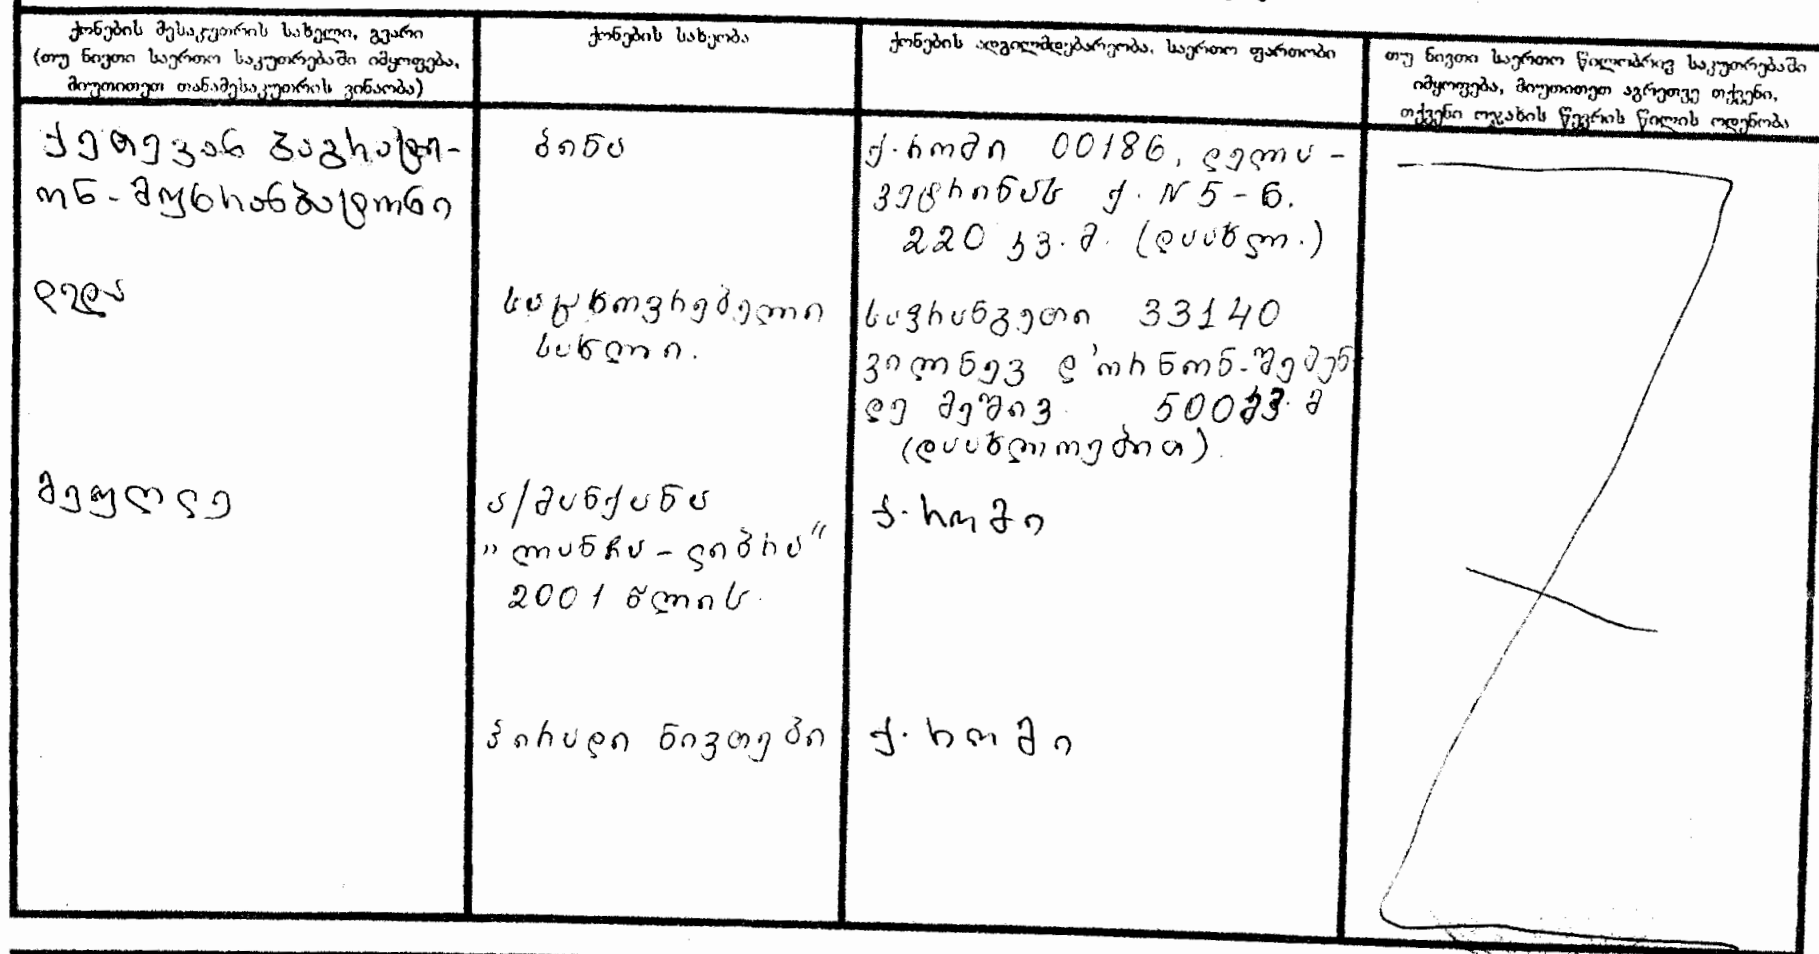 ქონების მესაკუთრის სახელი, გვარი
(თუ ნივთი საერთო საკუთრებაში იმყოფება,
მიუთითეთ თანამესაკუთრის ვინაობა)
ქონების სახეობა
ქონების ადგილმდებარეობა, საერთო ფართობი
თუ ნივთი საერთო წილობრივ საკუთრებაში
იმყოფება, მიუთითეთ აგრეთვე თქვენი,
თქვენი ოჯახის წევრის წილის ოდენობა
ქეთევან ბაგრატი-
ონ-მუხრანბატონი
ბინა
ქ. რომი 00186, დელა-
ვეტრინას ქ. N 5-6.
220 კვ. მ. (დაახლ.)
დედა
საცხოვრებელი
სახლი.
საფრანგეთი 33140
ვილნევ დ'ორნონ-შემენ
დე მეშივ. 500 კვ. მ
(დაახლოებით).
მეუღლე
ა/მანქანა
„ლანჩა-ლიბრა"
2001 წლის.
ქ. რომი
პირადი ნივთები
ქ. რომი